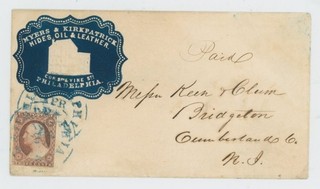 MYERS & KIRKPATRICK
HIDES, OIL & LEATHER,
COR. 3RD & VINE STS
PHILADELPHIA.
Paid
Messrs Keen & Clum
Bridgeton
Cumberland Co.
N. J.